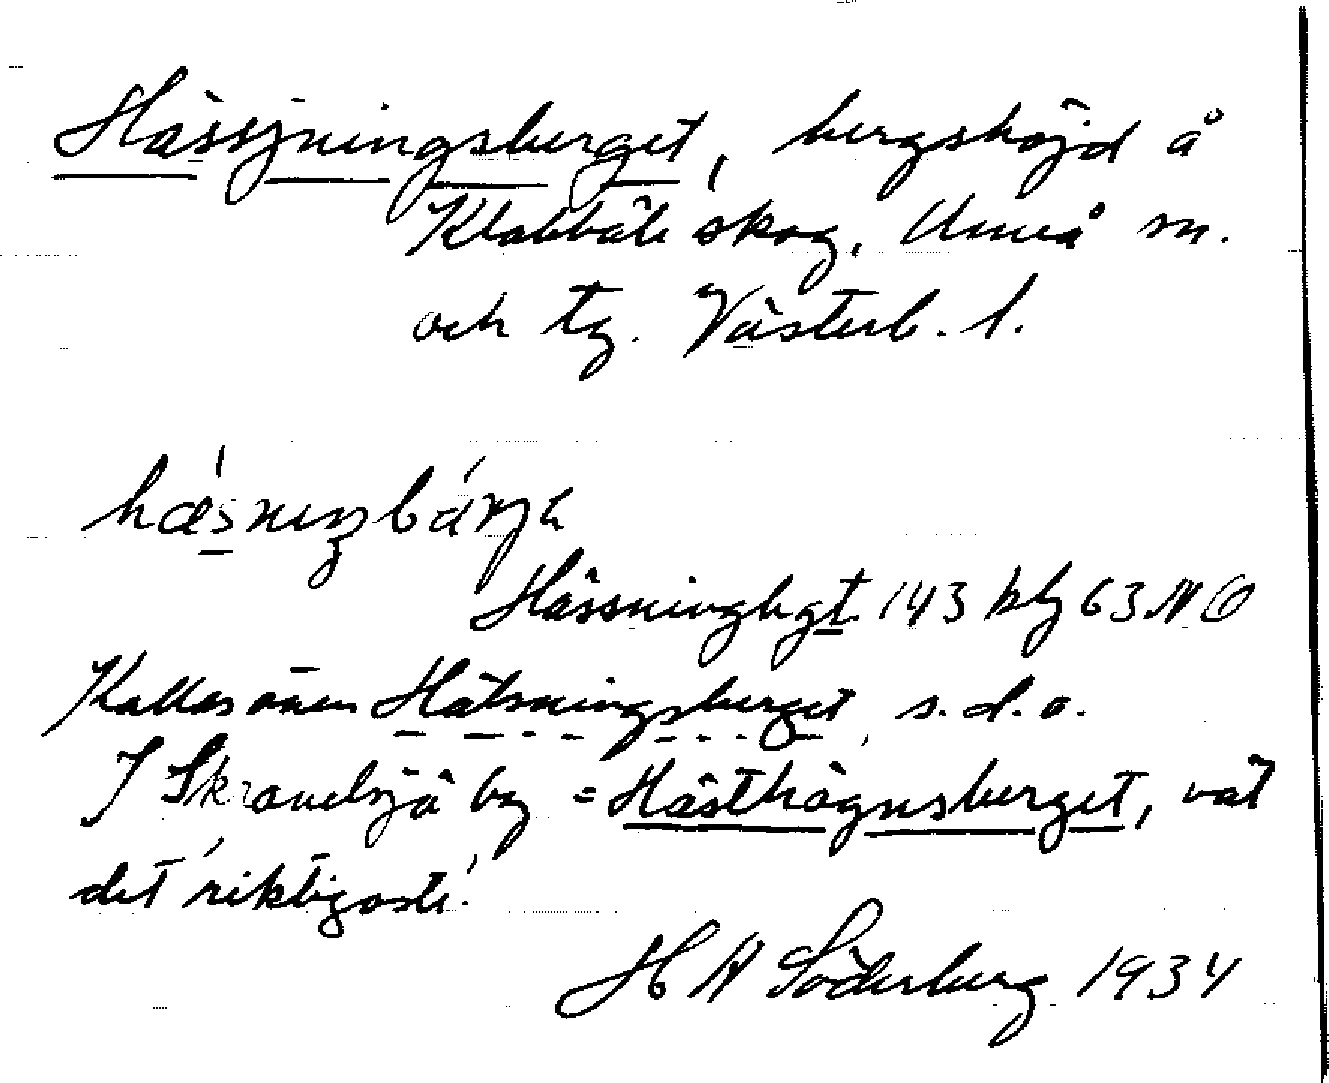 Hässjningsberget, bergshöjd å
Klabböle skog, Umeå sn.
och tg. Västerb. l.
Hässningbgt 143 blg 63 NO
Kallas även Hälsningsberget, s.d.o.
I Skravelsjö by = Hästhögnsberget, vat
det 'riktigaste'.
H A Söderberg 1934